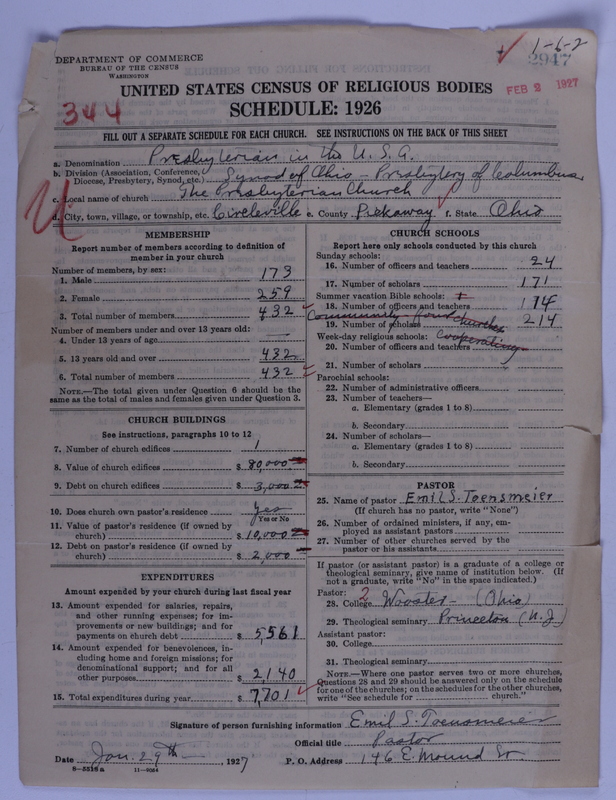 DEPARTMENT OF COMMERCE
BUREAU OF THE CENSUS
WASHINGTON
1-6-2
2947
FEB 2 1927
UNITED STATES CENSUS OF RELIGIOUS BODIES
SCHEDULE: 1926
344
FILL OUT A SEPARATE SCHEDULE FOR EACH CHURCH. SEE INSTRUCTIONS ON THE BACK OF THIS SHEET
a. Denomination Presbyterian in the U.S.A.
b. Division (Association, Conference, Diocese, Presbytery, Synod, etc.) Synod of Ohio - Presbytery of Columbus
c. Local name of church The Presbyterian Church
d. City, town, village, or township, etc. Circleville e. County Pickaway f. State Ohio
MEMBERSHIP
Report number of members according to definition of
member in your church
Number of members, by sex:
1. Male 173
2. Female 259
3. Total number of members 432
Number of members under and over 13 years old:
4. Under 13 years of age
5. 13 years old and over 432
6. Total number of members 432
NOTE.—The total given under Question 6 should be the
same as the total of males and females given under Question 3.
CHURCH BUILDINGS
See instructions, paragraphs 10 to 12
7. Number of church edifices 1
8. Value of church edifices $ 80,000
9. Debt on church edifices $ 3,000
10. Does church own pastor's residence? yes
Yes or No
11. Value of pastor's residence (if owned by
church) $ 10,000
12. Debt on pastor's residence (if owned by
church) $ 2,000
EXPENDITURES
Amount expended by your church during last fiscal year
13. Amount expended for salaries, repairs,
and other running expenses; for im-
provements or new buildings; and for
payments on church debt $ 5,561
14. Amount expended for benevolences, in-
cluding home and foreign missions; for
denominational support; and for all
other purposes $ 2140
15. Total expenditures during year $ 7,701
CHURCH SCHOOLS
Report here only schools conducted by this church
Sunday schools:
16. Number of officers and teachers 24
17. Number of scholars 171
Summer vacation Bible schools: +
18. Number of officers and teachers 14
Community four churches
19. Number of scholars 214
Week-day religious schools: Cooperating
20. Number of officers and teachers
21. Number of scholars
Parochial schools:
22. Number of administrative officers
23. Number of teachers—
a. Elementary (grades 1 to 8)
b. Secondary
24. Number of scholars—
a. Elementary (grades 1 to 8)
b. Secondary
PASTOR
25. Name of pastor Emil S. Toensmeier
(If church has no pastor, write "None")
26. Number of ordained ministers, if any, em-
ployed as assistant pastors
27. Number of other churches served by the
pastor or his assistants
If pastor (or assistant pastor) is a graduate of a college or
theological seminary, give name of institution below. (If
not a graduate, write "No" in the space indicated.)
Pastor:
28. College 2 Wooster - (Ohio)
29. Theological seminary Princeton (N.J)
Assistant pastor:
30. College
31. Theological seminary
NOTE.—Where one pastor serves two or more churches,
Questions 28 and 29 should be answered only on the schedule
for one of the churches; on the schedules for the other churches,
write "See schedule for church."
Signature of person furnishing information Emil S. Toensmeier
Official title Pastor
Date Jan. 29th, 1927 P. O. Address 146 E. Mound St.
8-5518a 11-9064